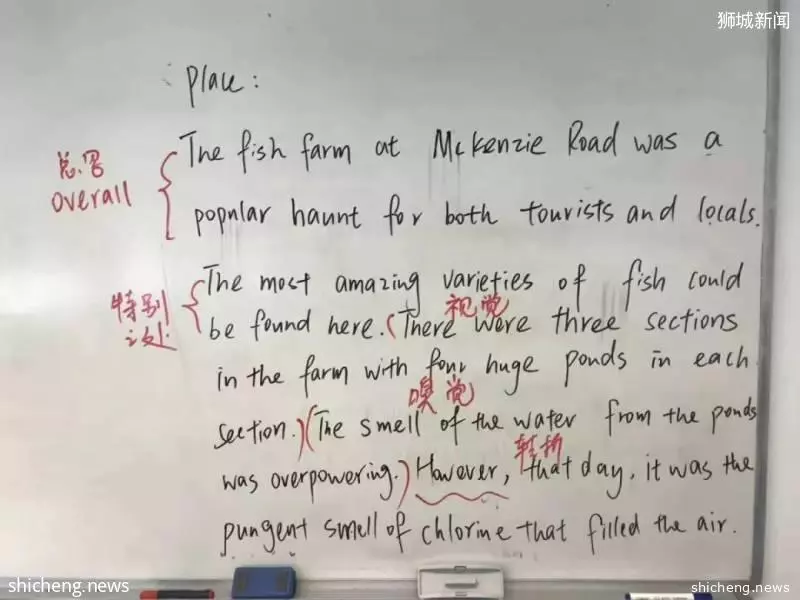 狮城新闻
Place:
总写
overall
The fish farm at McKenzie Road was a
popular haunt for both tourists and locals.
特别
之处
The most amazing varieties of fish could
视觉
be found here. (There were three sections
in the farm with four huge ponds in each
嗅觉
section.) (The smell of the water from the ponds
转折
was overpowering.) However, that day, it was the
pungent smell of chlorine that filled the air.
shicheng.news
shicheng.news